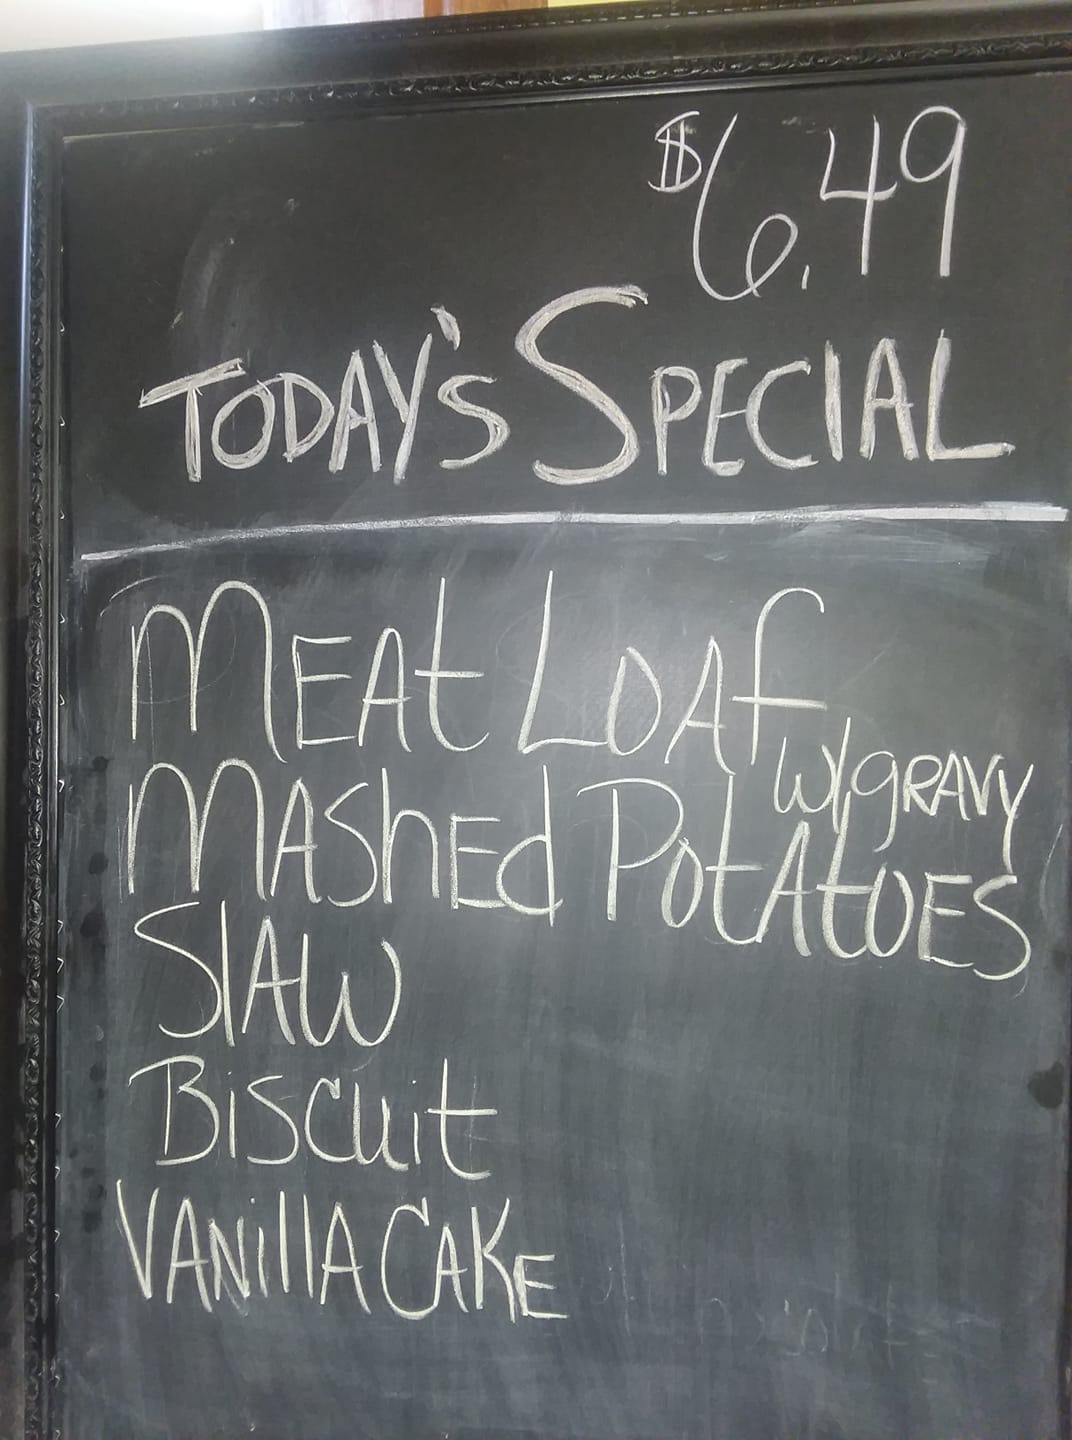 $6.49
TODAY'S SPECIAL
MEAT LOAF
W/GRAVY
MASHED POTATOES
SLAW
BISCUIT
VANILLA CAKE